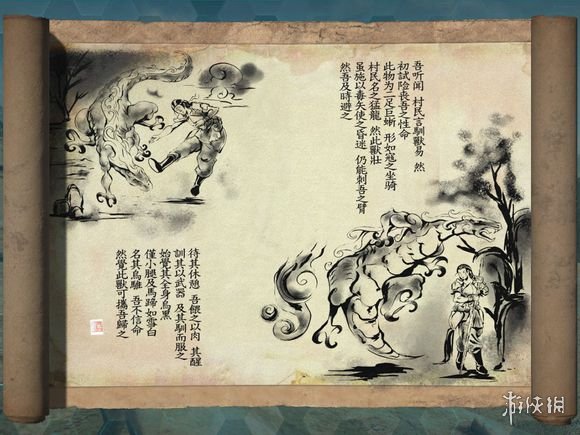 吾听闻 村民言馴獸易 然
初試險喪吾之性命
此物为二足巨蜥 形如寇之坐騎
村民名之猛龍 然此獸壯
雖施以毒矢使之昏迷 仍能刺吾之臂
然吾及時避之
待其休憩 吾餵之以肉 其醒
訓其以武器 及其馴而服之
始覺其全身烏黑
僅小腿及馬蹄如雪白
名其烏騅 吾不信命
然覺此獸可攜吾歸之
游侠網